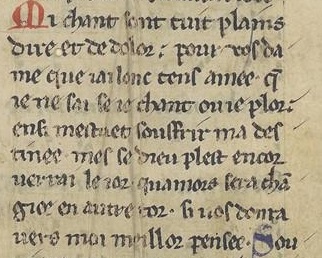 Mi chant sont tuit plains
dire et de dolor. pour vos da
me que iai lonc tens amee. q̃
ie ne sai se ie chant ou ie plor.
ensi mestuet souffrir ma des
tinee. mes se dieu plest encor
verrai le ior. quamors sera chã
gior en autre tor. si vos donra
vers moi meillor pensee. Sou